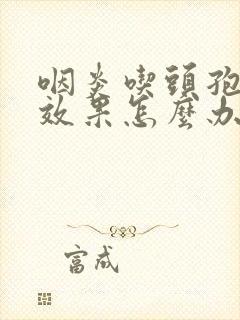 咽炎喫頭孢
效果怎麼办
富成